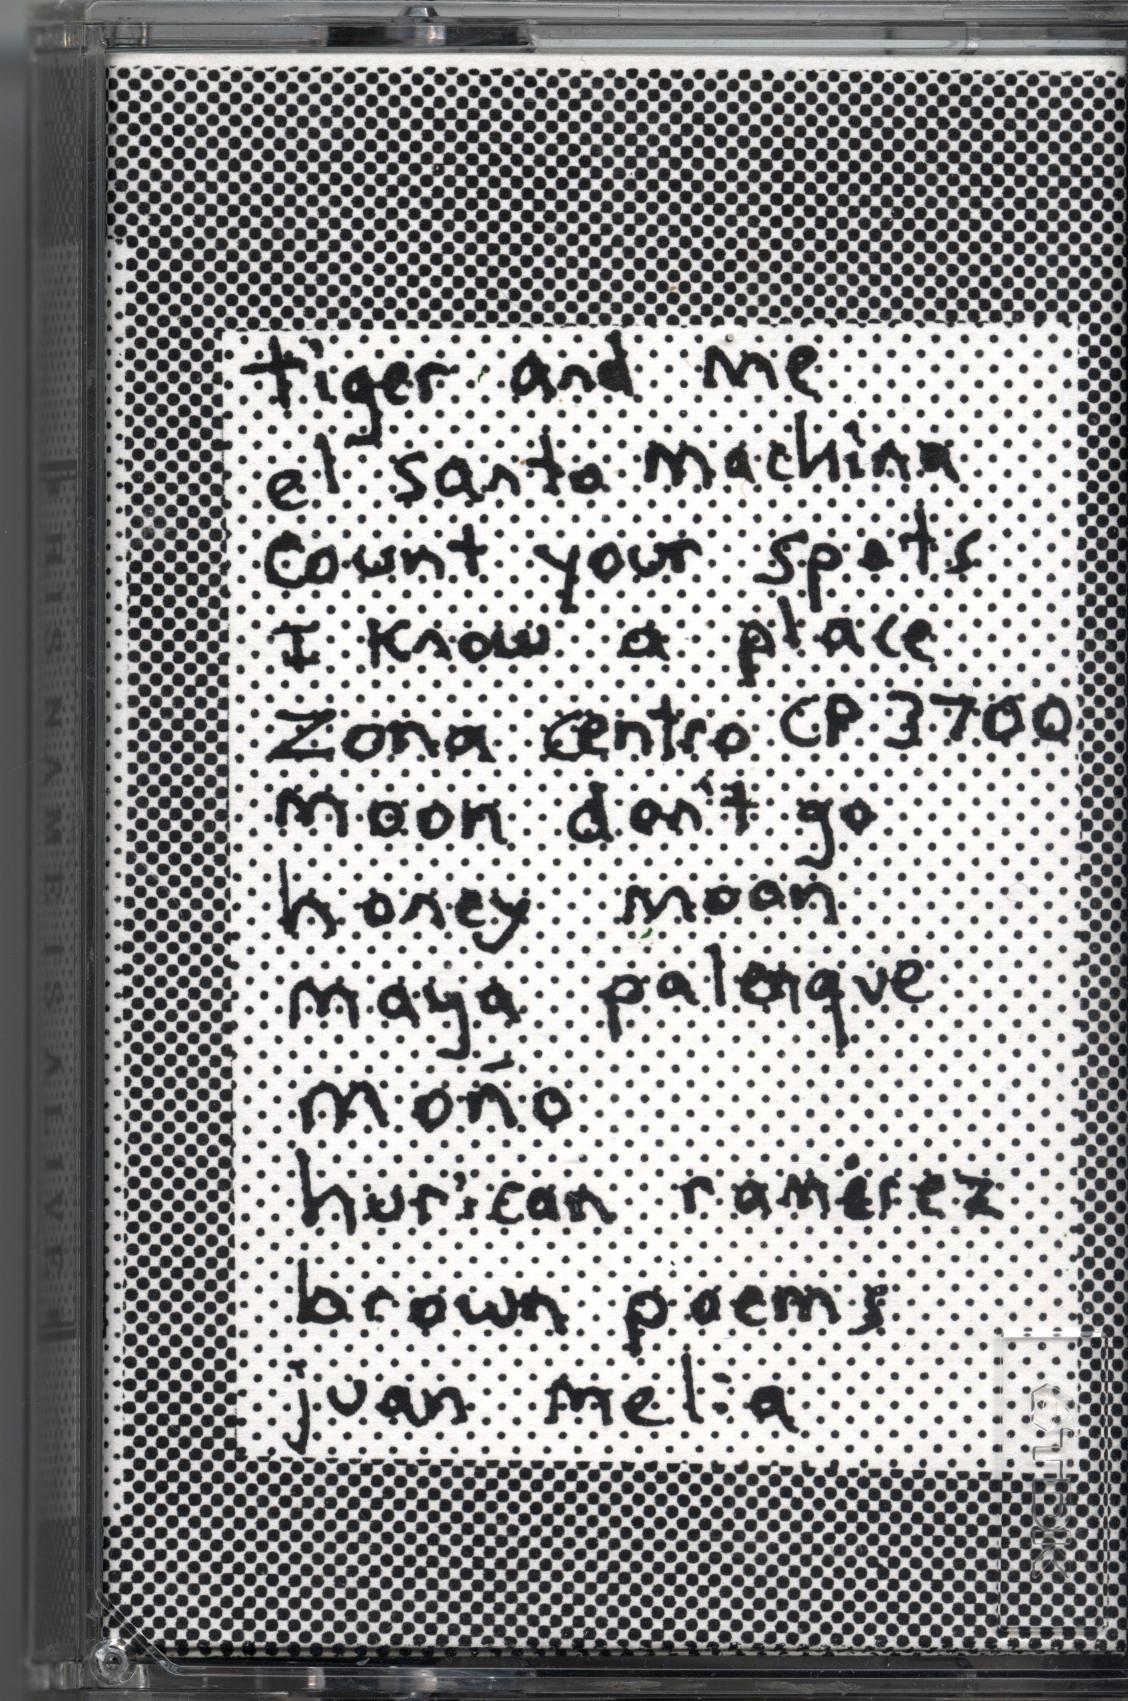 tiger and me
el santo machina
count your spots
I know a place
Zona centro CP 3700
moon don't go
honey moon
maya palenque
moño
hurican ramirez
brown poems
juan melia
HIS NAME IS ALIVE
TDK